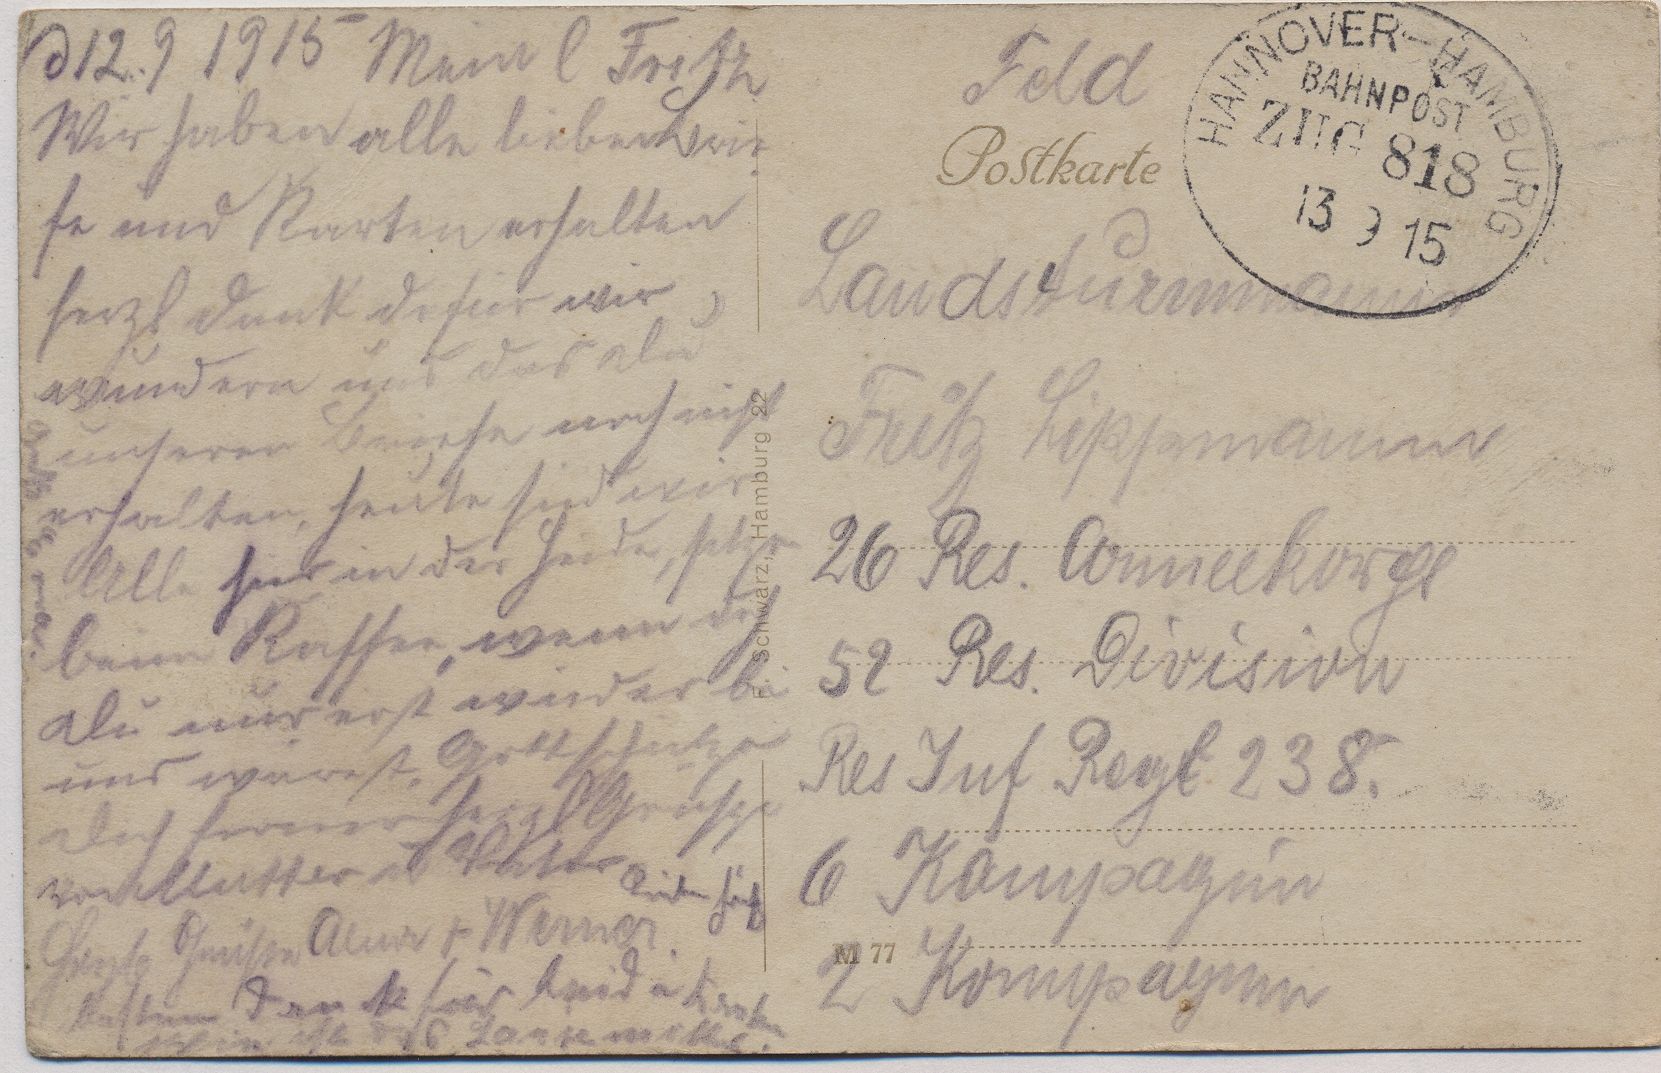 d 12.9 1915 Mein l Fritz
Wir haben alle lieben Brie
fe und Karten erhalten
herzl Dank dafür wir
wundern uns das Du
unseren Briefe noch nicht
erhalten, heute sind wir
Alle hier in der Heide, sitzen
beim Kaffee, wenn doch
Du nur erst wieder bei
uns wärest. Gott schütze
Dich ferner herzl Grüße
von Mutter u Vater
Herzl Grüße Alma + Werner
besten Dank für Brief u Karten
Wie ist das
Feld
Postkarte
HANNOVER-HAMBURG
BAHNPOST
ZUG 818
13 9 15
Landsturmmann
Fritz Lippmann
26 Res. Armeekorps
52 Res. Division
Res Inf Regt 238.
6 Kompagnie
2 Kompagnie
F. Schwarz, Hamburg 22
M 77